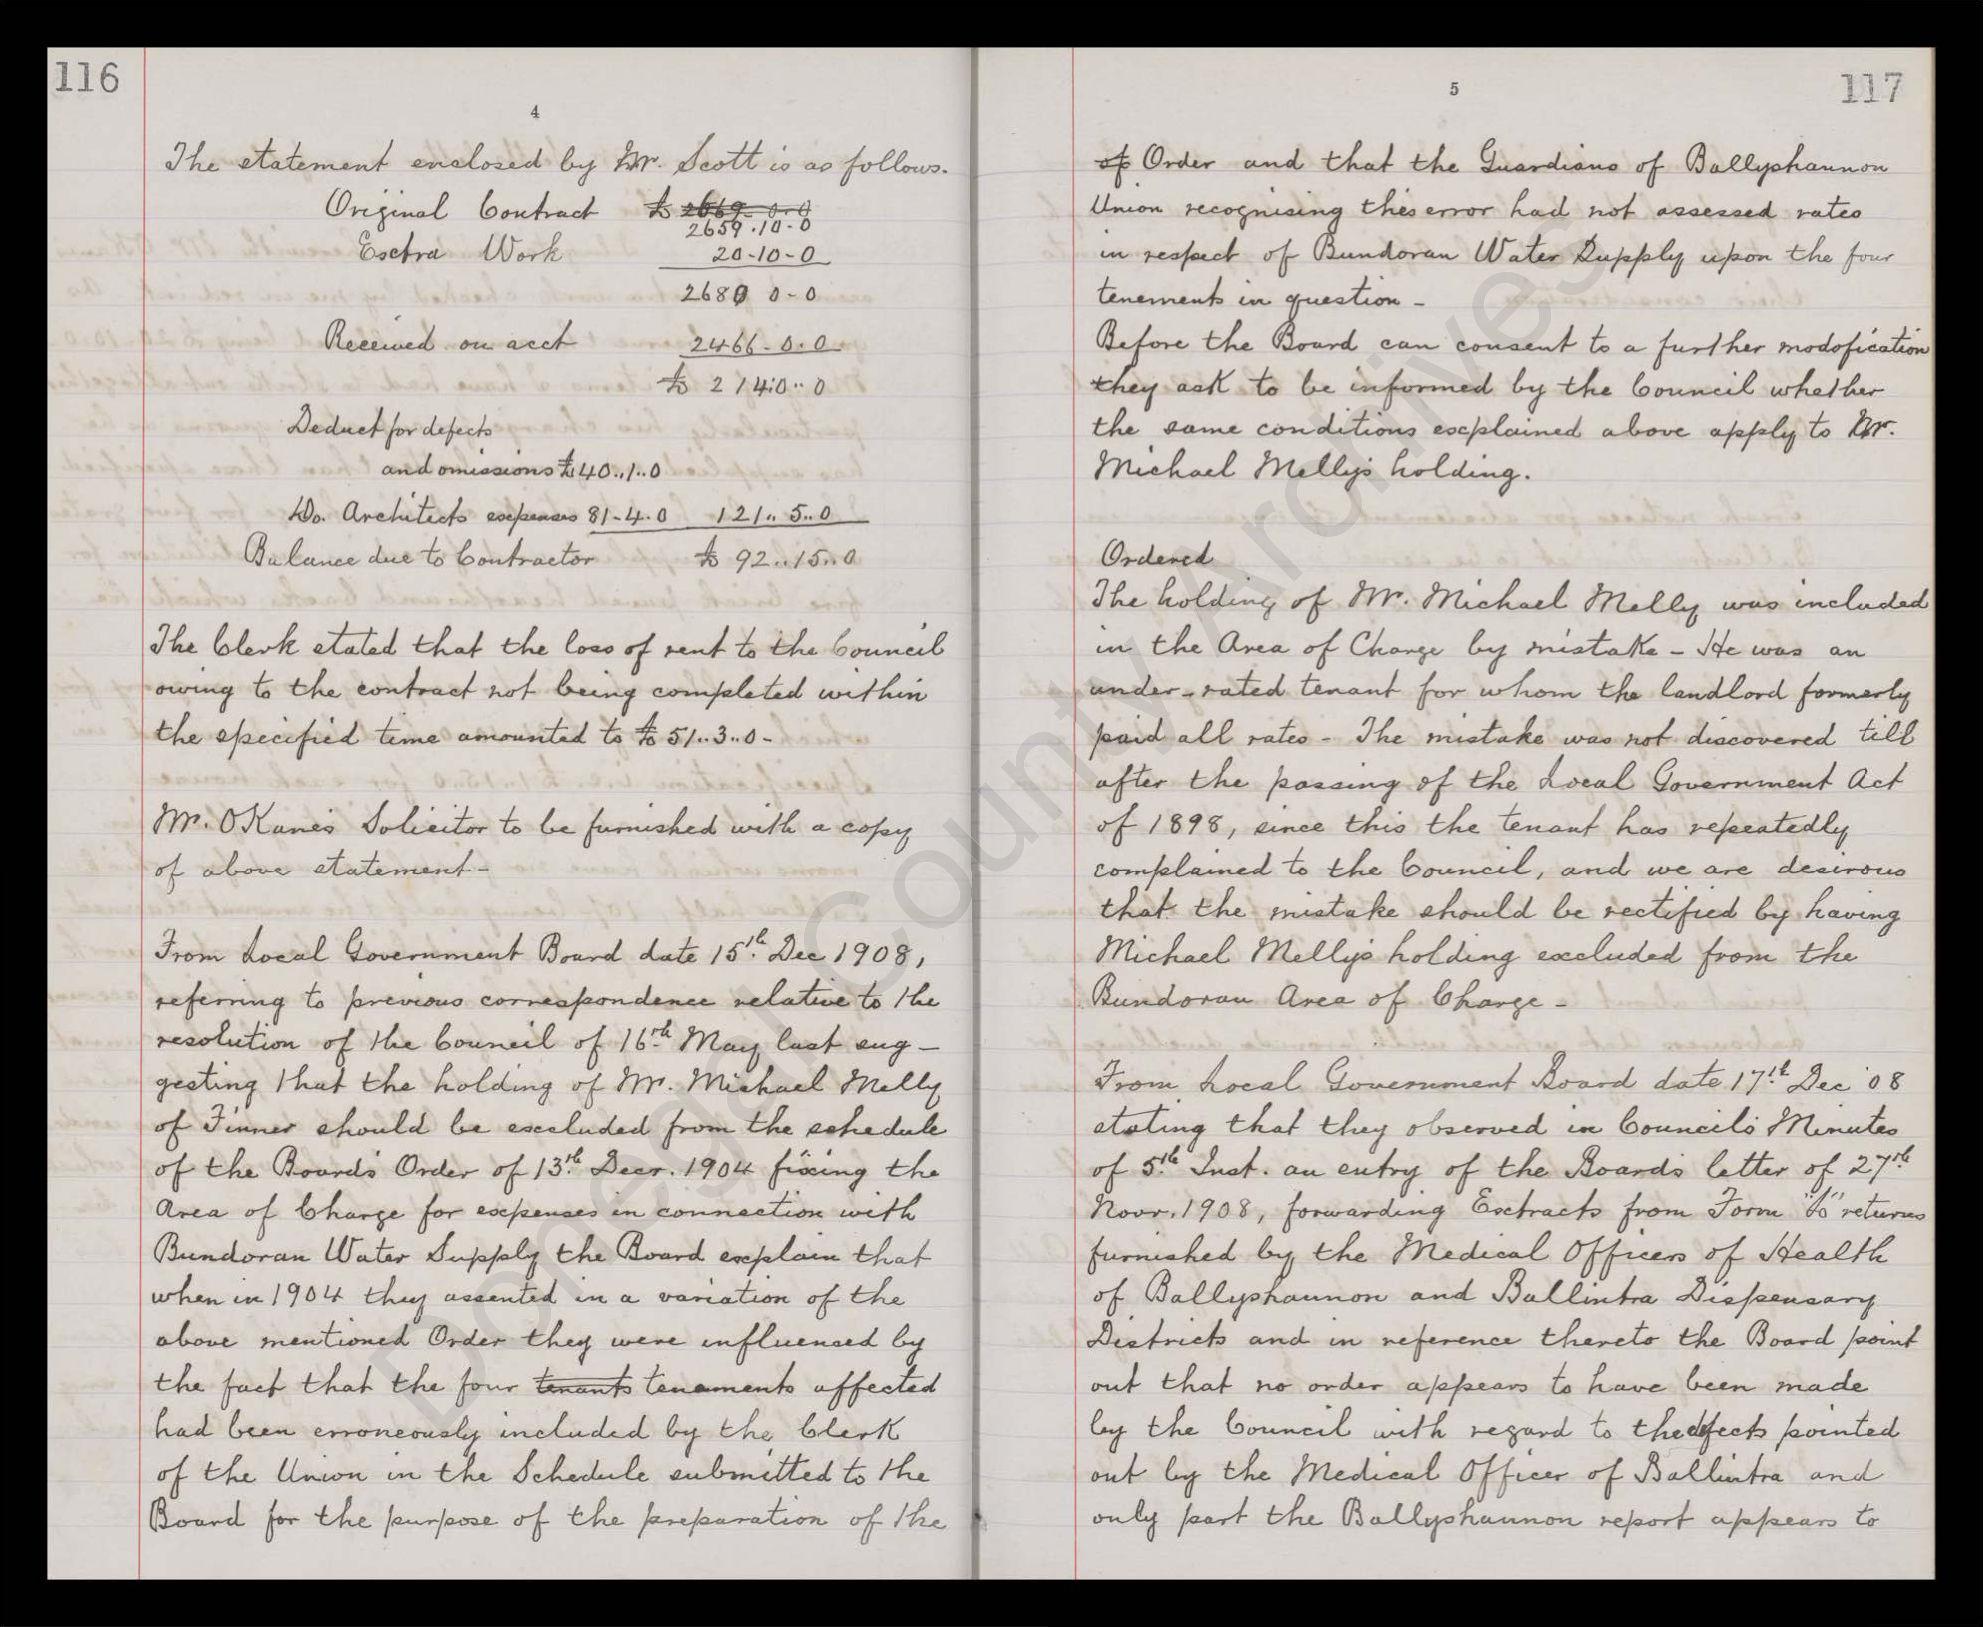 116
4
The statement enclosed by Mr. Scott is as follows.
Original Contract £ 2669-0-0
2659.10-0
Esctra Work 20-10-0
2680 0-0
Received on acct 2466-0.0
£ 214.0..0
Deduct for defects
and omissions £40..1..0
Do. Architects expenses 81-4.0 121.. 5..0
Balance due to Contractor £ 92..15..0
The Clerk stated that the loss of rent to the Council
owing to the contract not being completed within
the specified time amounted to £51..3..0-
Mr. OKane's Solicitor to be furnished with a copy
of above statement-
From Local Government Board date 15th Dec 1908,
referring to previous correspondence relative to the
resolution of the Council of 16th May last sug-
gesting that the holding of Mr. Michael Melly
of Finner should be excluded from the schedule
of the Board's Order of 13th Decr. 1904 fixing the
Area of Charge for expenses in connection with
Bundoran Water Supply the Board explain that
when in 1904 they assented in a variation of the
above mentioned Order they were influenced by
the fact that the four tenants tenements affected
had been erroneously included by the Clerk
of the Union in the Schedule submitted to the
Board for the purpose of the preparation of the
5
117
of Order and that the Guardians of Ballyshannon
Union recognising this error had not assessed rates
in respect of Bundoran Water Supply upon the four
tenements in question -
Before the Board can consent to a further modofication
they ask to be informed by the Council whether
the same conditions explained above apply to Mr.
Michael Melly's holding.
Ordered
The holding of Mr. Michael Melly was included
in the Area of Charge by mistake - He was an
under-rated tenant for whom the landlord formerly
paid all rates - The mistake was not discovered till
after the passing of the Local Government Act
of 1898, since this the tenant has repeatedly
complained to the Council, and we are desirous
that the mistake should be rectified by having
Michael Melly's holding excluded from the
Bundoran Area of Charge -
From Local Government Board date 17th Dec '08
stating that they observed in Council's Minutes
of 5th Inst. an entry of the Board's letter of 27th
Novr. 1908, forwarding Extracts from Form returns
furnished by the Medical Officers of Health
of Ballyshannon and Ballintra Dispensary
Districts and in reference thereto the Board point
out that no order appears to have been made
by the Council with regard to the defects pointed
out by the Medical Officer of Ballintra and
only part the Ballyshannon report appears to
Donegal County Archives